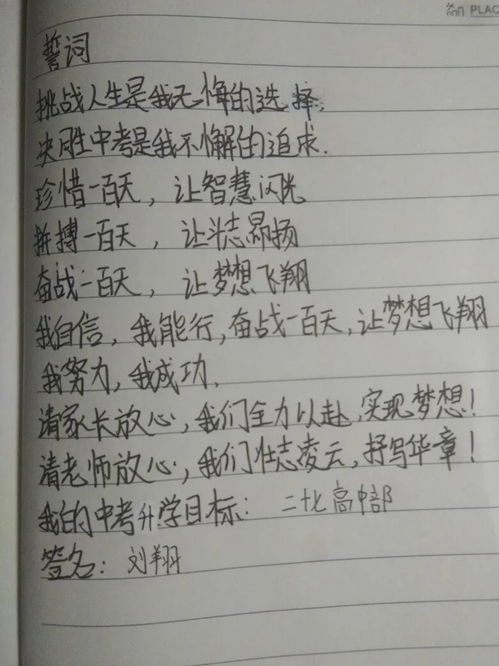 PLAC
誓词
挑战人生是我无悔的选择,
决胜中考是我不懈的追求.
珍惜一百天，让智慧闪光
拼搏一百天，让斗志昂扬
奋战一百天，让梦想飞翔
我自信，我能行，奋战一百天，让梦想飞翔
我努力，我成功.
请家长放心，我们全力以赴，实现梦想！
请老师放心，我们壮志凌云，抒写华章！
我的中考升学目标：二十七高中部
签名：刘翔